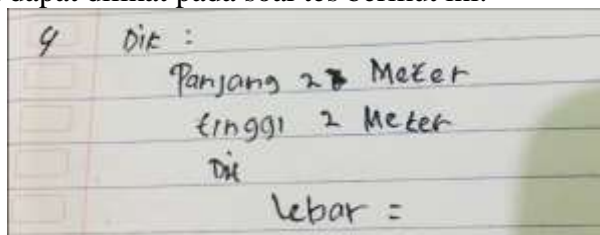 dapat dilihat pada soal tes berikut ini.
4 Dik :
Panjang 2 Meter
tinggi 2 Meter
Dit
lebar =